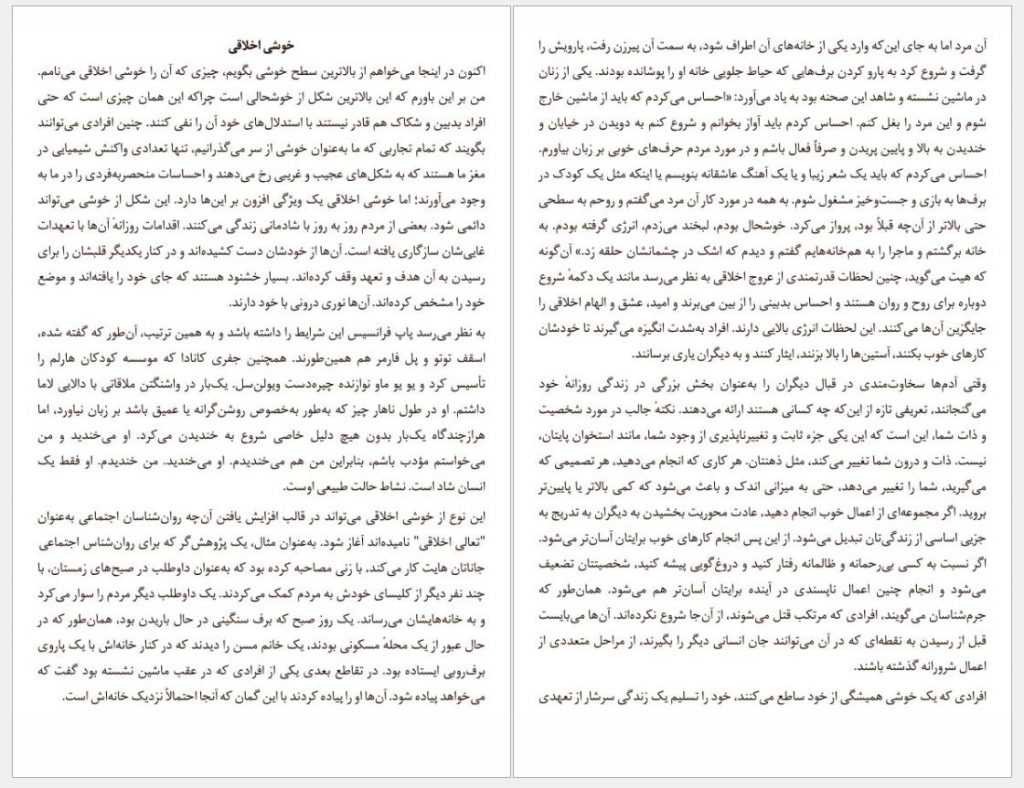 خوشی اخلاقی
اکنون در اینجا می‌خواهم از بالاترین سطح خوشی بگویم، چیزی که آن را خوشی اخلاقی می‌نامم.
من بر این باورم که این بالاترین شکل از خوشحالی است چراکه این همان چیزی است که حتی
افراد بدبین و شکاک هم قادر نیستند با استدلال‌های خود آن را نفی کنند. چنین افرادی می‌توانند
بگویند که تمام تجاربی که ما به‌عنوان خوشی از سر می‌گذرانیم، تنها تعدادی واکنش شیمیایی در
مغز ما هستند که به شکل‌های عجیب و غریبی رخ می‌دهند و احساسات منحصربه‌فردی را در ما به
وجود می‌آورند؛ اما خوشی اخلاقی یک ویژگی افزون بر این‌ها دارد. این شکل از خوشی می‌تواند
دائمی شود. بعضی از مردم روز به روز با شادمانی زندگی می‌کنند. اقدامات روزانهٔ آن‌ها با تعهدات
غایی‌شان سازگاری یافته است. آن‌ها از خودشان دست کشیده‌اند و در کنار یکدیگر قلبشان را برای
رسیدن به آن هدف و تعهد وقف کرده‌اند. بسیار خشنود هستند که جای خود را یافته‌اند و موضع
خود را مشخص کرده‌اند. آن‌ها نوری درونی با خود دارند.
به نظر می‌رسد پاپ فرانسیس این شرایط را داشته باشد و به همین ترتیب، آن‌طور که گفته شده،
اسقف توتو و پل فارمر هم همین‌طورند. همچنین جفری کانادا که موسسه کودکان هارلم را
تأسیس کرد و یو یو ماو نوازنده چیره‌دست ویولن‌سل. یک‌بار در واشنگتن ملاقاتی با دالایی لاما
داشتم. او در طول ناهار چیز که به‌طور به‌خصوص روشن‌گرانه یا عمیق باشد بر زبان نیاورد، اما
هرازچندگاه یک‌بار بدون هیچ دلیل خاصی شروع به خندیدن می‌کرد. او می‌خندید و من
می‌خواستم مؤدب باشم، بنابراین من هم می‌خندیدم. او می‌خندید. من خندیدم. او فقط یک
انسان شاد است. نشاط حالت طبیعی اوست.
این نوع از خوشی اخلاقی می‌تواند در قالب افزایش یافتن آن‌چه روان‌شناسان اجتماعی به‌عنوان
"تعالی اخلاقی" نامیده‌اند آغاز شود. به‌عنوان مثال، یک پژوهش‌گر که برای روان‌شناس اجتماعی
جاناتان هایت کار می‌کند، با زنی مصاحبه کرده بود که به‌عنوان داوطلب در صبح‌های زمستان، با
چند نفر دیگر از کلیسای خودش به مردم کمک می‌کردند. یک داوطلب دیگر مردم را سوار می‌کرد
و به خانه‌هایشان می‌رساند. یک روز صبح که برف سنگینی در حال باریدن بود، همان‌طور که در
حال عبور از یک محلهٔ مسکونی بودند، یک خانم مسن را دیدند که در کنار خانه‌اش با یک پاروی
برف‌روبی ایستاده بود. در تقاطع بعدی یکی از افرادی که در عقب ماشین نشسته بود گفت که
می‌خواهد پیاده شود. آن‌ها او را پیاده کردند با این گمان که آنجا احتمالاً نزدیک خانه‌اش است.
آن مرد اما به جای این‌که وارد یکی از خانه‌های آن اطراف شود، به سمت آن پیرزن رفت، پارویش را
گرفت و شروع کرد به پارو کردن برف‌هایی که حیاط جلویی خانه او را پوشانده بودند. یکی از زنان
در ماشین نشسته و شاهد این صحنه بود به یاد می‌آورد: «احساس می‌کردم که باید از ماشین خارج
شوم و این مرد را بغل کنم. احساس کردم باید آواز بخوانم و شروع کنم به دویدن در خیابان و
خندیدن به بالا و پایین پریدن و صرفاً فعال باشم و در مورد مردم حرف‌های خوبی بر زبان بیاورم.
احساس می‌کردم که باید یک شعر زیبا و یا یک آهنگ عاشقانه بنویسم یا اینکه مثل یک کودک در
برف‌ها به بازی و جست‌وخیز مشغول شوم. به همه در مورد کار آن مرد می‌گفتم و روحم به سطحی
حتی بالاتر از آن‌چه قبلاً بود، پرواز می‌کرد. خوشحال بودم، لبخند می‌زدم، انرژی گرفته بودم. به
خانه برگشتم و ماجرا را به هم‌خانه‌هایم گفتم و دیدم که اشک در چشمانشان حلقه زد.» آن‌گونه
که هیت می‌گوید، چنین لحظات قدرتمندی از عروج اخلاقی به نظر می‌رسد مانند یک دکمهٔ شروع
دوباره برای روح و روان هستند و احساس بدبینی را از بین می‌برند و امید، عشق و الهام اخلاقی را
جایگزین آن‌ها می‌کنند. این لحظات انرژی بالایی دارند. افراد به‌شدت انگیزه می‌گیرند تا خودشان
کارهای خوب بکنند، آستین‌ها را بالا بزنند، ایثار کنند و به دیگران یاری برسانند.
وقتی آدم‌ها سخاوت‌مندی در قبال دیگران را به‌عنوان بخش بزرگی در زندگی روزانهٔ خود
می‌گنجانند، تعریفی تازه از این‌که چه کسانی هستند ارائه می‌دهند. نکتهٔ جالب در مورد شخصیت
و ذات شما، این است که این یکی جزء ثابت و تغییرناپذیری از وجود شما، مانند استخوان پایتان،
نیست. ذات و درون شما تغییر می‌کند، مثل ذهنتان. هر کاری که انجام می‌دهید، هر تصمیمی که
می‌گیرید، شما را تغییر می‌دهد، حتی به میزانی اندک و باعث می‌شود که کمی بالاتر یا پایین‌تر
بروید. اگر مجموعه‌ای از اعمال خوب انجام دهید، عادت محوریت بخشیدن به دیگران به تدریج به
جزیی اساسی از زندگی‌تان تبدیل می‌شود. از این پس انجام کارهای خوب برایتان آسان‌تر می‌شود.
اگر نسبت به کسی بی‌رحمانه و ظالمانه رفتار کنید و دروغ‌گویی پیشه کنید، شخصیتتان تضعیف
می‌شود و انجام چنین اعمال ناپسندی در آینده برایتان آسان‌تر هم می‌شود. همان‌طور که
جرم‌شناسان می‌گویند، افرادی که مرتکب قتل می‌شوند، از آن‌جا شروع نکرده‌اند. آن‌ها می‌بایست
قبل از رسیدن به نقطه‌ای که در آن می‌توانند جان انسانی دیگر را بگیرند، از مراحل متعددی از
اعمال شرورانه گذشته باشند.
افرادی که یک خوشی همیشگی از خود ساطع می‌کنند، خود را تسلیم یک زندگی سرشار از تعهدی